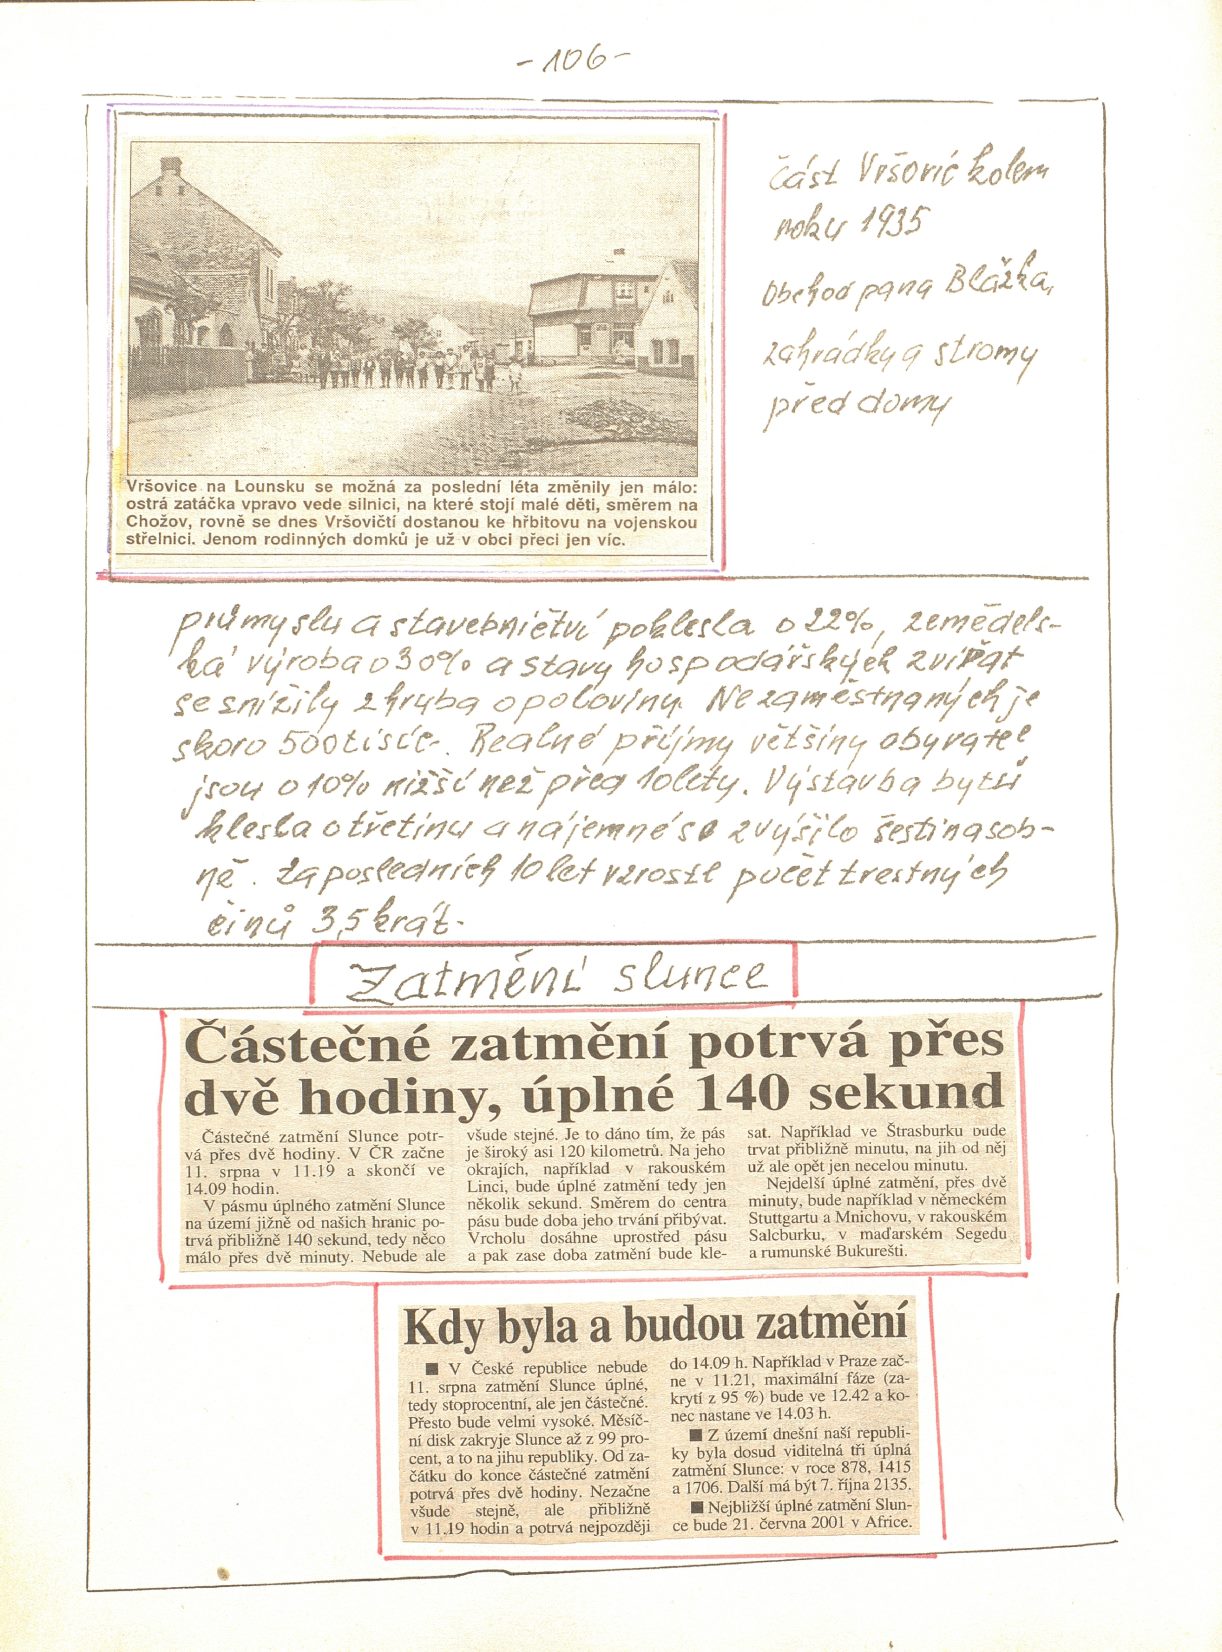 - 106 -
Část Vršovic kolem
roku 1935
Obchod pana Blážka,
zahrádky a stromy
před domy
Vršovice na Lounsku se možná za poslední léta změnily jen málo:
ostrá zatáčka vpravo vede silnici, na které stojí malé děti, směrem na
Chožov, rovně se dnes Vršovičtí dostanou ke hřbitovu na vojenskou
střelnici. Jenom rodinných domků je už v obci přeci jen víc.
průmyslu a stavebnictví poklesla o 22%, zeměděls-
ká výroba o 30% a stavy hospodářských zvířat
se snížily zhruba o polovinu. Nezaměstnaných je
skoro 500 tisíc. Realné příjmy většiny obyvatel
jsou o 10% nižší než před 10 lety. Výstavba bytů
klesla o třetinu a nájemné se zvýšilo šestinásob-
ně. Za posledních 10 let vzrostl počet trestných
činů 3,5 krát.
Zatmění slunce
Částečné zatmění potrvá přes
dvě hodiny, úplné 140 sekund
Částečné zatmění Slunce potr-
vá přes dvě hodiny. V ČR začne
11. srpna v 11.19 a skončí ve
14.09 hodin.
V pásmu úplného zatmění Slunce
na území jižně od našich hranic po-
trvá přibližně 140 sekund, tedy něco
málo přes dvě minuty. Nebude ale
všude stejné. Je to dáno tím, že pás
je široký asi 120 kilometrů. Na jeho
okrajích, například v rakouském
Linci, bude úplné zatmění tedy jen
několik sekund. Směrem do centra
pásu bude doba jeho trvání přibývat.
Vrcholu dosáhne uprostřed pásu
a pak zase doba zatmění bude kle-
sat. Například ve Štrasburku bude
trvat přibližně minutu, na jih od něj
už ale opět jen necelou minutu.
Nejdelší úplné zatmění, přes dvě
minuty, bude například v německém
Stuttgartu a Mnichovu, v rakouském
Salcburku, v maďarském Segedu
a rumunské Bukurešti.
Kdy byla a budou zatmění
■ V České republice nebude
11. srpna zatmění Slunce úplné,
tedy stoprocentní, ale jen částečné.
Přesto bude velmi vysoké. Měsíč-
ní disk zakryje Slunce až z 99 pro-
cent, a to na jihu republiky. Od za-
čátku do konce částečné zatmění
potrvá přes dvě hodiny. Nezačne
všude stejně, ale přibližně
v 11.19 hodin a potrvá nejpozději
do 14.09 h. Například v Praze zač-
ne v 11.21, maximální fáze (za-
krytí z 95 %) bude ve 12.42 a ko-
nec nastane ve 14.03 h.
■ Z území dnešní naší republi-
ky byla dosud viditelná tři úplná
zatmění Slunce: v roce 878, 1415
a 1706. Další má být 7. října 2135.
■ Nejbližší úplné zatmění Slun-
ce bude 21. června 2001 v Africe.